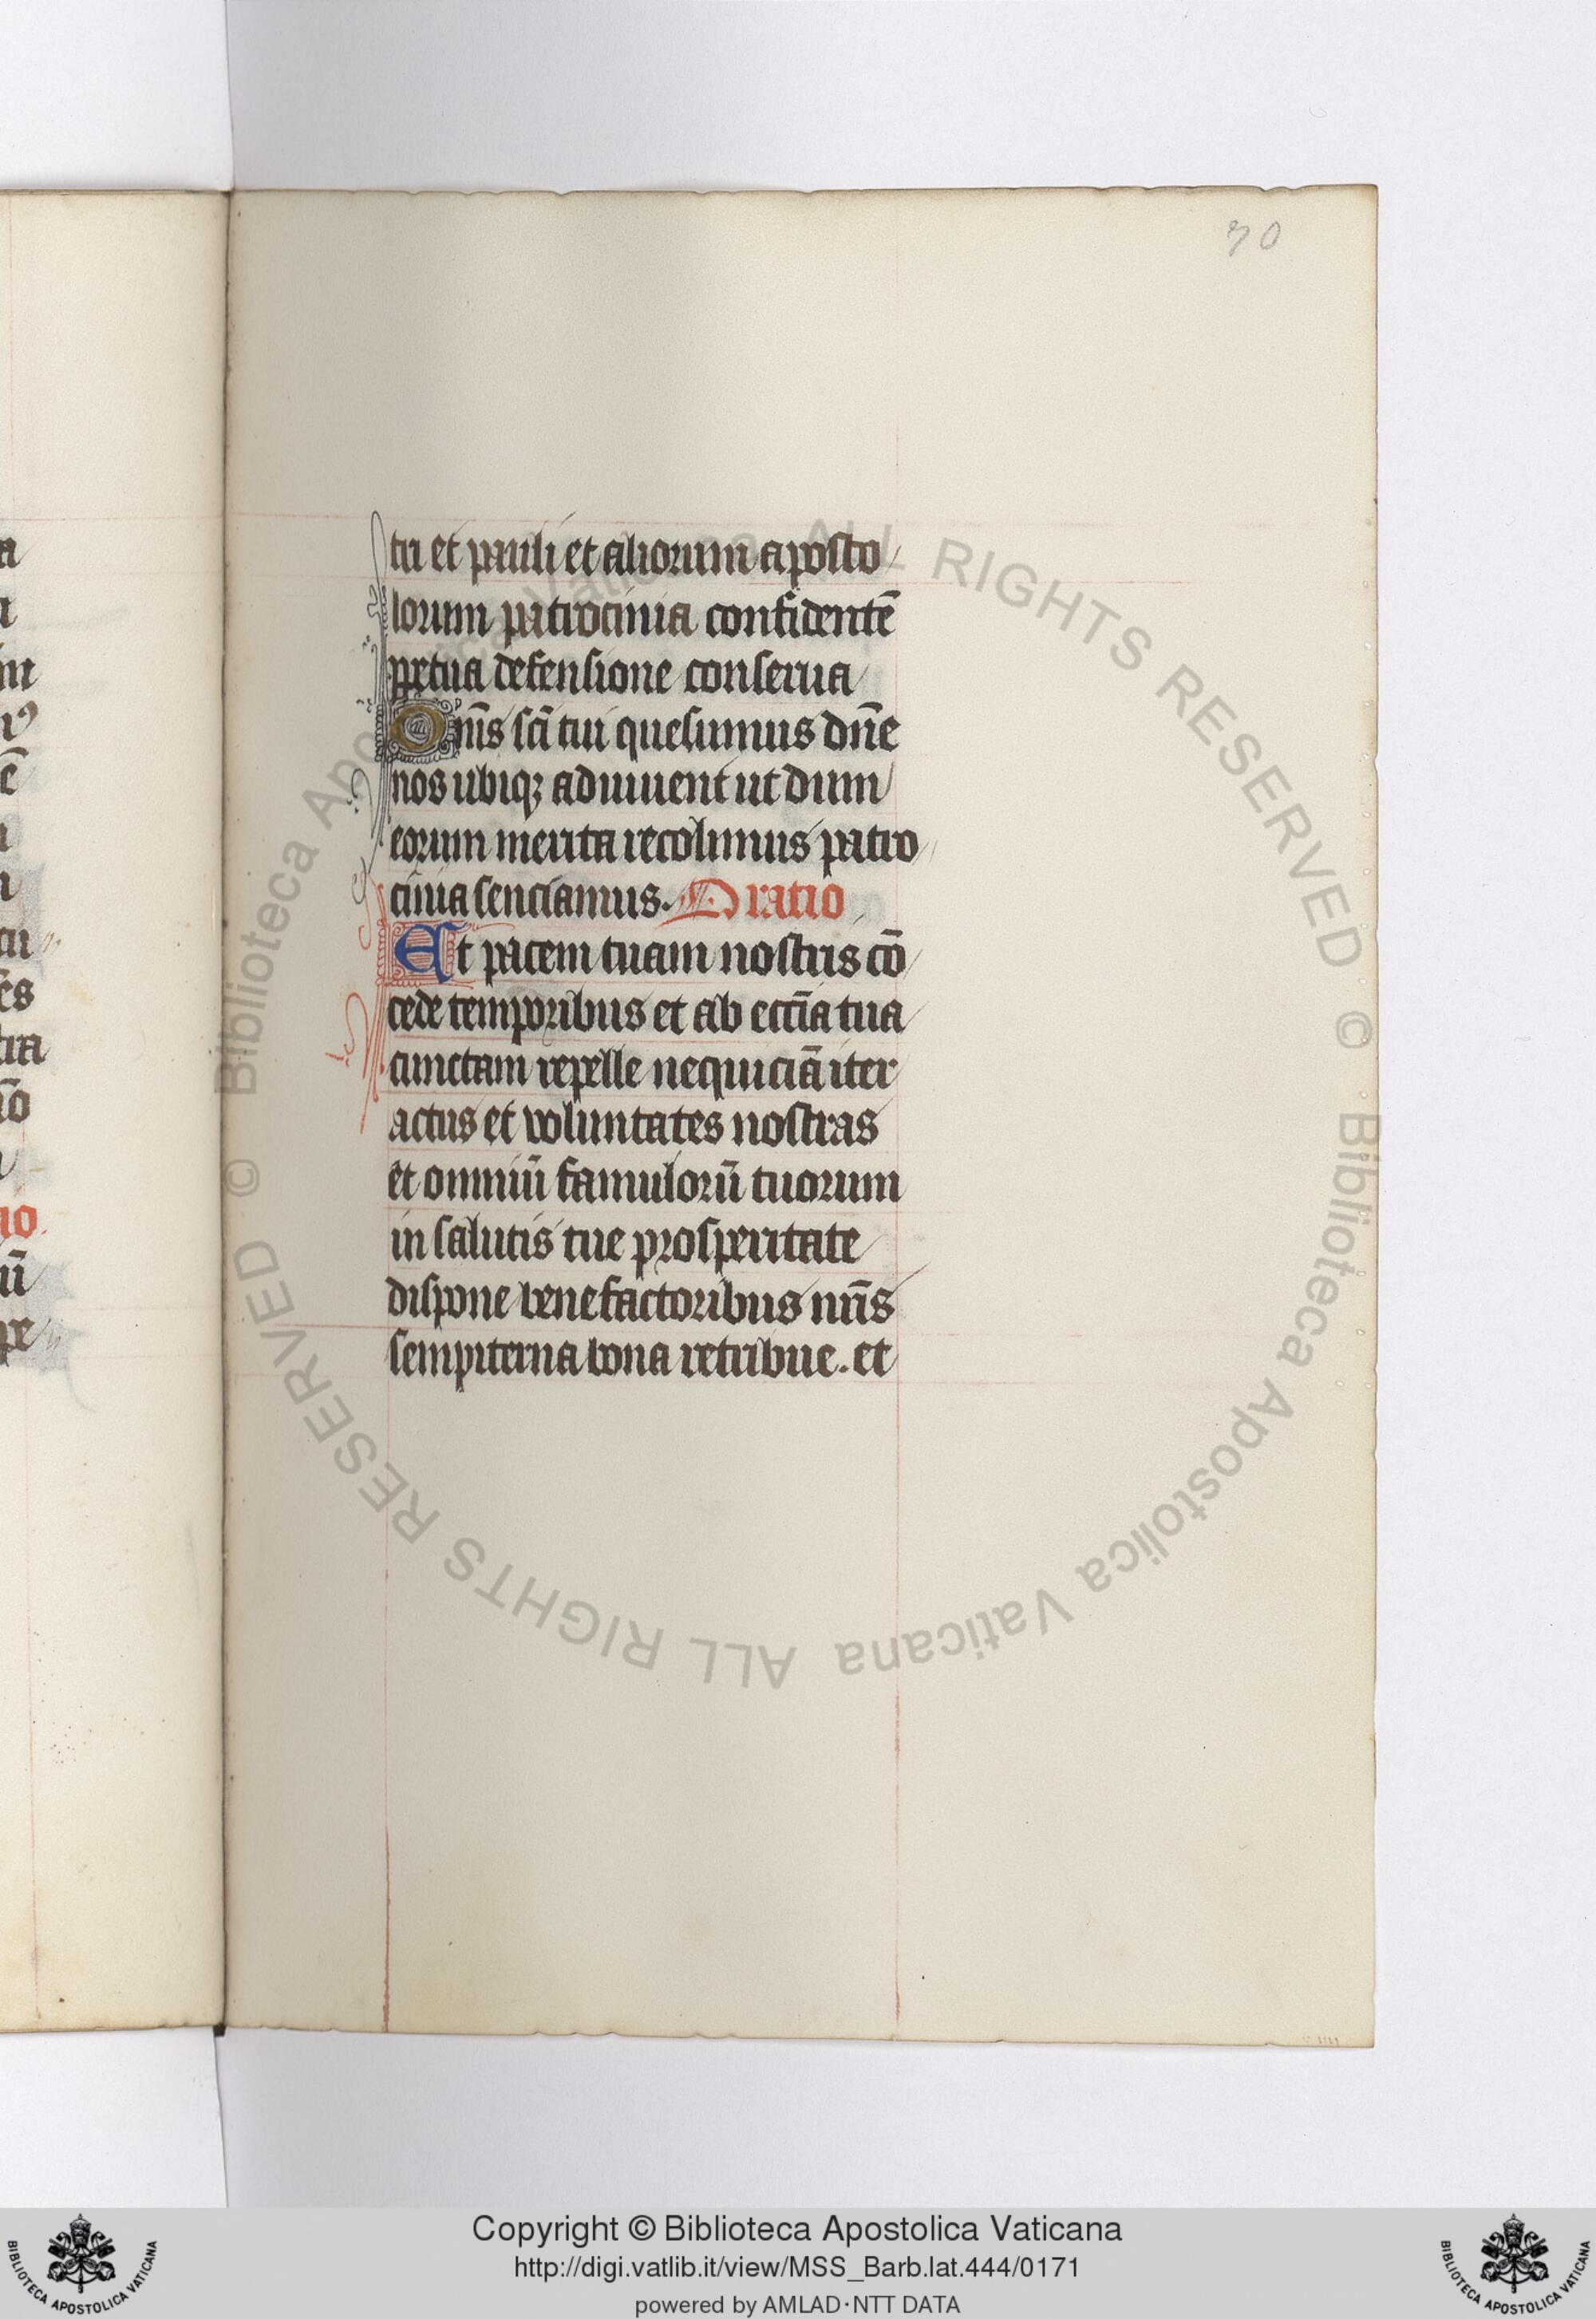 70
tri et pauli et aliorum aposto
lorum patrocinia confidentē
ꝑpetua defensione conserua
Om̄s sc̄i tui quesumus dn̄e
nos ubiqꝫ adiuuent ut dum
eorum merita recolimus patro
cinia senciamus. Oratio
Et pacem tuam nostris cō
cede temporibus et ab eccl̄ia tua
cunctam repelle nequiciā iter
actus et voluntates nostras
et omniū famulorū tuorum
in salutis tue prosperitate
dispone benefactoribus nr̄is
sempiterna bona retribue. et
Copyright © Biblioteca Apostolica Vaticana
http://digi.vatlib.it/view/MSS_Barb.lat.444/0171
powered by AMLAD·NTT DATA
© Biblioteca Apostolica Vaticana ALL RIGHTS RESERVED
© Biblioteca Apostolica Vaticana ALL RIGHTS RESERVED
BIBLIOTECA APOSTOLICA VATICANA
BIBLIOTECA APOSTOLICA VATICANA